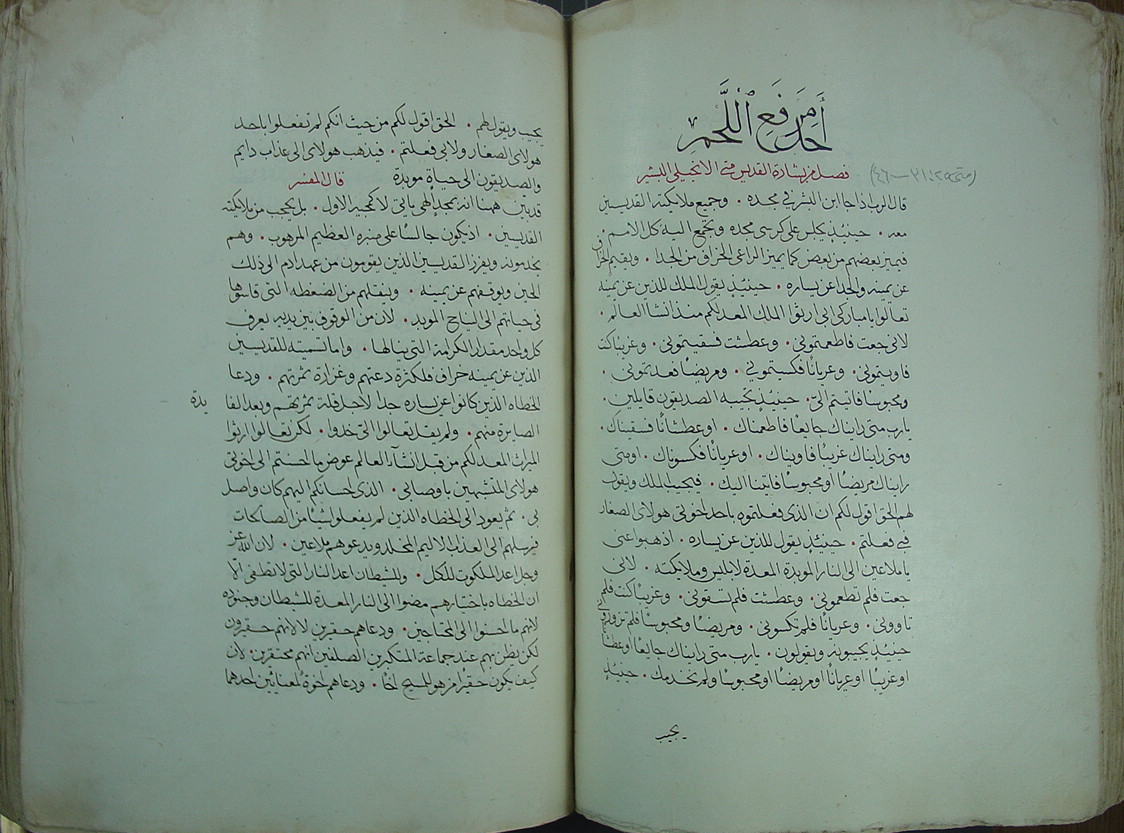 أحد مرفع اللحم
فصل من بشارة القديس متى الانجيلي البشير (متى ٢٥: ٣١ - ٤٦)
قال الرب اذا جا ابن البشر في مجده • وجميع ملايكته القديسين
معه • حينيذٍ يجلس على كرسي مجده وتجتمع اليه كل الامم •
فيميز بعضهم من بعض كما يميز الراعي الخراف من الجدا • ويقيم الخراف
عن يمينه والجدا عن يساره • حينيذٍ يقول الملك للذين عن يمينه
تعالوا يا مباركي ابي ارثوا الملك المعد لكم منذ انشا العالم •
لاني جعت فاطعمتوني • وعطشت فسقيتموني • وغريبا كنت
فاويتموني • وعريانًا فكسيتموني • ومريضًا فعدتموني •
ومحبوسًا فاتيتم اليّ • حينيذٍ يجيبه الصديقون قايلين •
يا رب متى رايناك جايعًا فاطعمناك • او عطشانًا فسقيناك •
ومتى رايناك غريبًا فاويناك • او عريانًا فكسوناك • او متى
رايناك مريضًا او محبوسًا فاتينا اليك • فيجيب الملك ويقول
لهم الحق اقول لكم ان الذي فعلتموه باحد اخوتي هولاي الصغار
في فعلتم • حينيذٍ يقول للذين عن يساره • اذهبوا عني
يا ملاعين الى النار الموبدة المعدة لابليس وملايكته • لاني
جعت فلم تطعموني • وعطشت فلم تسقوني • وغريبًا كنت فلم
تاووني • وعريانًا فلم تكسوني • ومريضًا ومحبوسًا فلم تزوروني
حينيذٍ يجيبونه ويقولون • يا رب متى رايناك جايعًا او عطشانًا
او غريبًا او عريانًا او مريضًا او محبوسًا ولم نخدمك • حينيذٍ
يجيب
يجيب ويقول لهم • الحق اقول لكم من حيث انكم لم تفعلوا باحد
هولاي الصغار ولا بي فعلتم • فيذهب هولاي الى عذاب دايم
والصديقون الى حياة موبدة قال المفسر
قد بين ههنا انه بمجد الهي ياتي لا كمجيه الاول • بل يجيب من ملايكته
القديسين • اذ يكون جالسًا على منبره العظيم المرهوب • وهم
يخدمونه ويفرز القديسين الذين يقومون من عهد ادم الى ذلك
الحين ويوقفهم عن يمينه • وينقلهم من الضغطه التي قاسوها
في حياتهم الى النياح الموبد • لان من الوقوف بين يديه يعرف
كل واحد مقدار الكرامة التي ينالها • واما تسميته للقديسين
الذين عن يمينه خراف فلكثرة دعتهم وغزارة ثمرتهم • ودعا
الخطاه الذين كانوا عن يساره جدا لاجل قلة ثمرتهم وبعد الفايدة
الصايرة منهم • ولم يقل تعالوا اليّ خذوا • لكن تعالوا ارثوا
الميراث المعد لكم من قبل انشآ العالم عوض ما احسنتم الى اخوتي
هولاي المتشبهين باوصالي • الذي احسانكم اليهم كان واصل
لي • ثم يعود الى الخطاه الذين لم يفعلوا شيا من الصالحات
فيرسلهم الى العذاب الاليم المخلد ويدعوهم ملاعين • لان الله عز
وجل اعد الملكوت للكل • وللشيطان اعد النار التي لا تطفى الا
ان الخطاه باختيارهم مضوا الى النار المعدة للشيطان وجنوده
لانهم ما احسنوا الى المحتاجين • ودعاهم حقيرين لا لانهم حقيرون
لكن يظن بهم عند جماعة المتكبرين الصلفين انهم محتقرين • لان
كيف يكون حقيرًا من هو للمسيح اخًا • ودعاهم اخوة لمعنايين احدهما